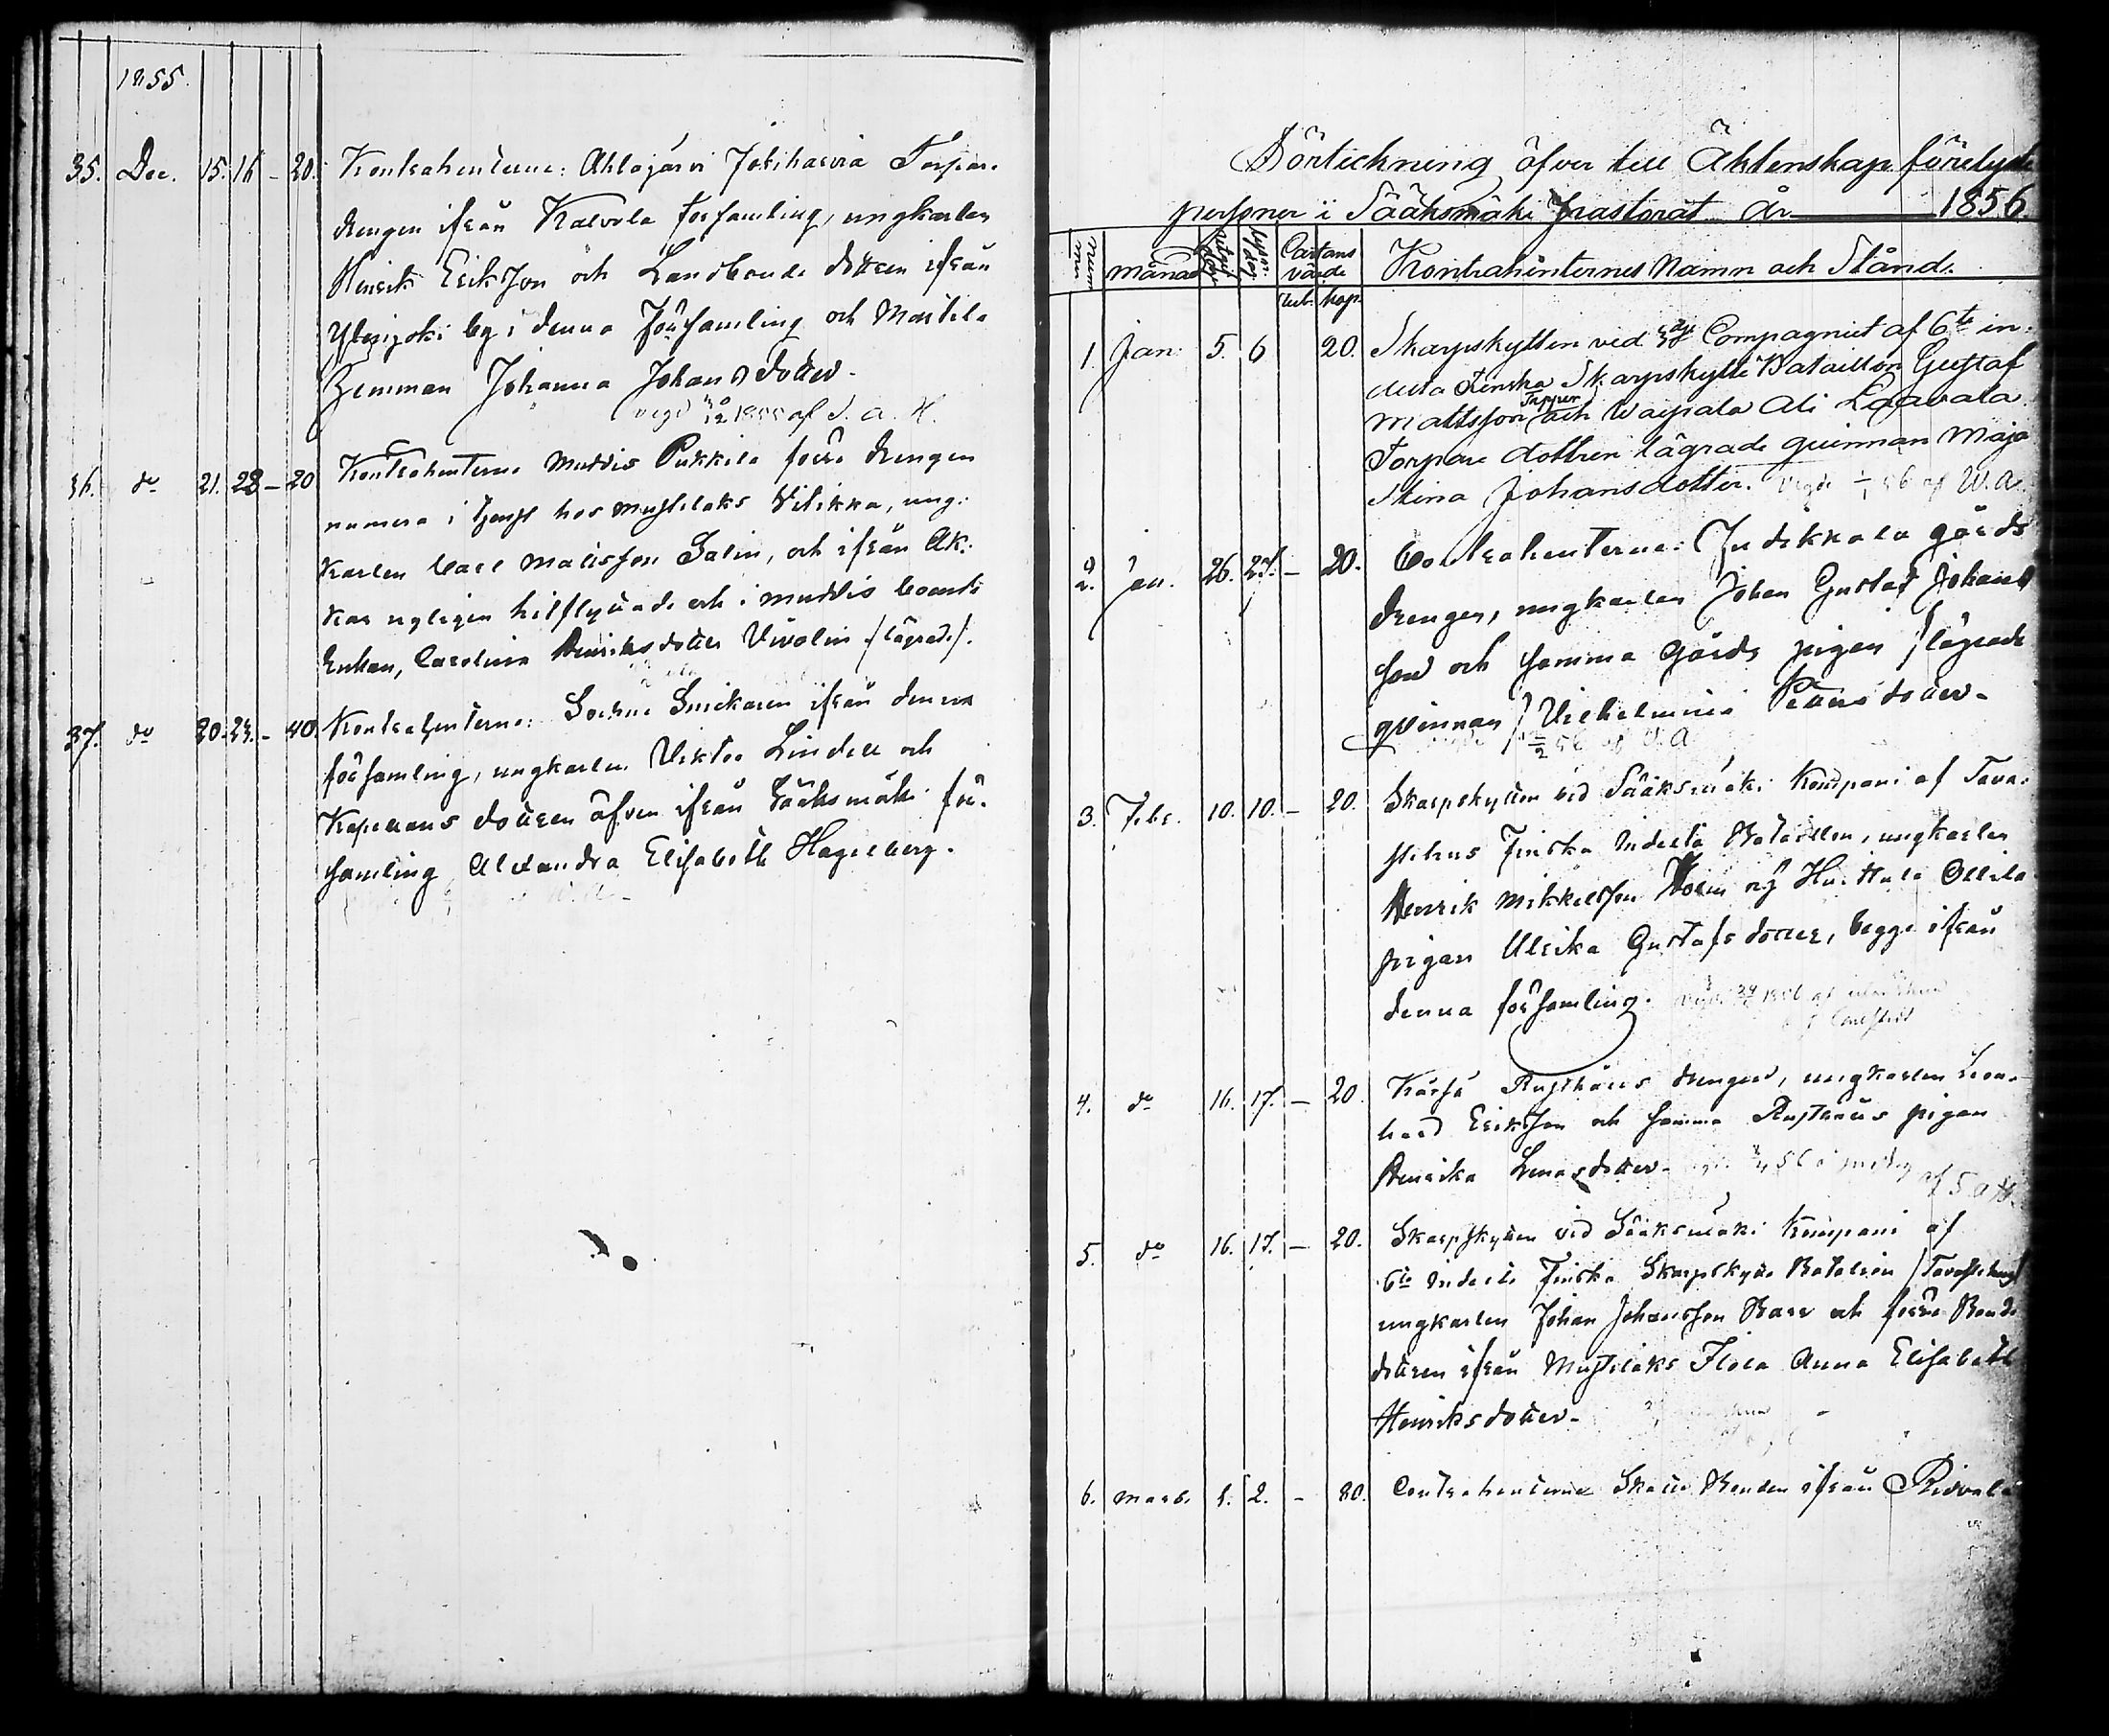 1855.
35. Dec. 15. 16 – 20. Kontrahenterne: Ahlajärvi Jokiharia Torpare
drengen ifrån Kalvola församling, ungkarlen
Henrik Eriksson och Landbonde dottren ifrån
by i denna församling och Marttila
hemman Johanna Johansdotter.
vigd 30/12 1855 af S. A. H.
36. do 21. 23 – 20 Kontrahenterne Muddis Pukkila förre drengen
numera i tjenst hos Mustilaks Vilikka, ung:
karlen Carl Matisson Salin, och ifrån Ak:
kas nyligen hitflyttade och i Muddis boende
Enkan, Carolina Henriksdotter Vivolin /lägrad/.
37. do 20. 23. – 40. Kontrahenterne: Sockne Snickaren ifrån denna
församling, ungkarlen Viktor Lindell och
Kapellans dottren äfven ifrån Sääksmäki för-
samling Alexandra Elisabeth Hagelberg.
Förtekning öfver till Äktenskap förelyste
personer i Sääksmäki Pastorat år 1856
Num månad Cartans värde Kontrahenternes Namn och Stånd.
rub. kop.
1. Jan: 5. 6 20. Skarpskytten vid 3dje Compagniet af 6te in:
delta Finska Skarpskytte Bataillon Gustaf
Mattsson Tapper och Waipala Ali Laavala
Torpare dottren lägrade qvinnan Maja
Stina Johansdotter. vigde 56 af W. A.
2. Jan. 26. 27. – 20. Contrahenterne: Gårds
drengen, ungkarlen Johan Gustaf Johans
son och samma Gårds pigan /lägrade
qvinnan/ Vilhelmina
3. Febr. 10. 10. – 20. Skarpskytten vid Sääksmäki Kompani af Tava-
stehus Finska Indelta Bataillon, ungkarlen
Henrik Mikkelsson och Huittula Ollila
pigan Ulrika Gustafsdotter, begge ifrån
denna församling.
4. do 16. 17. – 20. Rusthålls drengen, ungkarlen Leon-
hard Eriksson och samma Rusthålls pigan
Henrika af S A H.
5. do 16. 17. – 20. Skarpskytten vid Sääksmäki Kompani af
6te Indelta Finska Skarpskytte Bataljon /Tavastehus/
ungkarlen Johan Johansson och förre Bonde
dottren ifrån Mustilaks Flola Anna Elisabeth
Henriksdotter.
6. Mars. 1. 2. – 80. Contrahenterne Skatte Bonden ifrån Ridvala